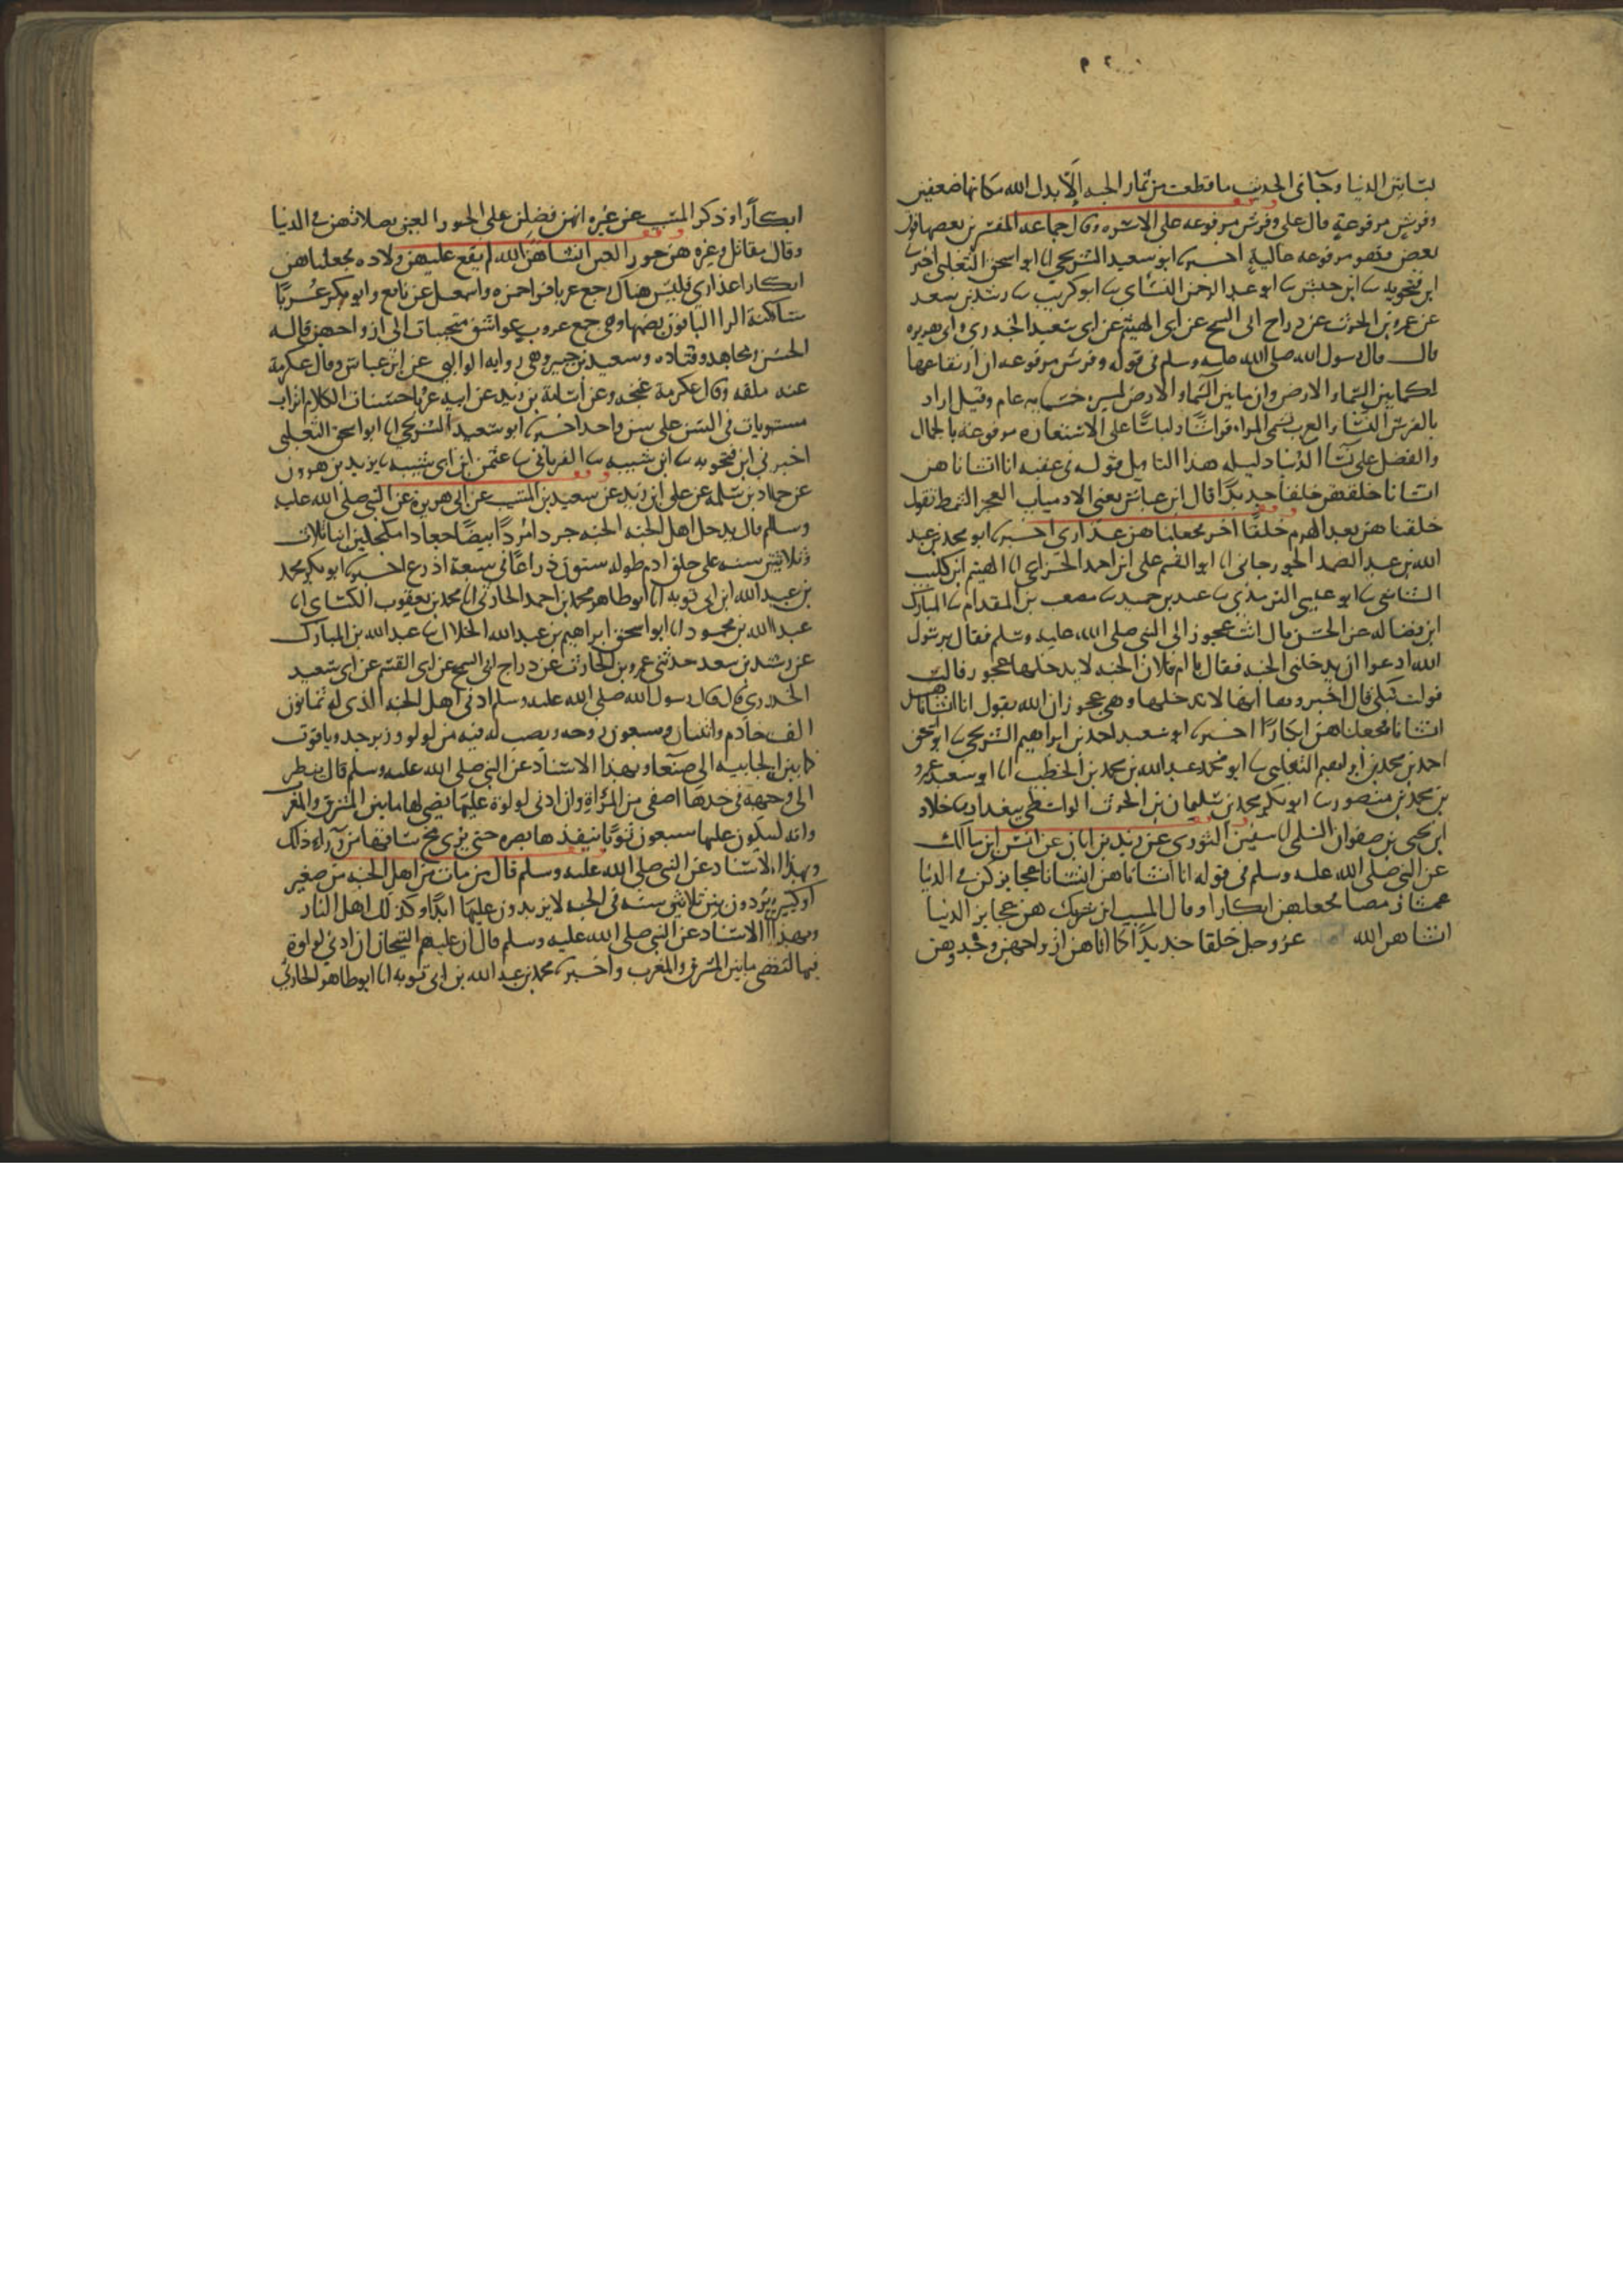 ٢٠٩
بساتين الدنيا وجا في الحديث ما قطعت من ثمار الجنه الا بدل الله مكانها ضعفين
وفرش مرفوعة قال علي وفرش مرفوعه على الاسره وقال جماعه المفسرين بعضها فوق
بعض فهو مرفوعه عالية اخبرنا ابو سعيد الشريحي انا ابو اسحق الثعلبي اخبرنا
ابن فنجويه نا ابن حبش نا ابو عبد الرحمن النساي نا ابو كريب نا رشد بن سعد
عن عمرو بن الحرث عن دراج ابي السمح عن ابي الهيثم عن ابي سعيد الخدري وابي هريره
قال قال رسول الله صلى الله عليه وسلم في قوله وفرش مرفوعه ان ارتفاعها
لكما بين السماء والارض وان ما بين السماء والارض لمسيره خمسمايه عام وقيل اراد
بالفرش النساء والعرب تسمى المراه فراشا ولباسا على الاستعاره مرفوعه بالجمال
والفضل على نسآ الدنيا دليله هذا التاويل قوله في عقبه انا انشاناهن
انشانا خلقنهن خلقا جديدا قال ابن عباس يعني الادميات العجز الشمط نقول
خلقناهن بعد الهرم خلقا اخر فجعلناهن عذارى اخبرنا ابو محمد بن عبد
الله بن عبد الصمد الجورجاني انا ابو القسم علي ابن احمد الخزاعي انا الهيثم ابن كليب
الشاشي نا ابو عيسى الترمذي نا عبد بن حميد نا مصعب بن المقدام نا المبارك
ابن فضاله عن الحسن قال اتت عجوز الى النبي صلى الله عليه وسلم فقال يرسول
الله ادعوا ان يدخلني الجنه فقال يا ام فلان ان الجنه لا يدخلها عجوز قالت
فولت تبكي قال اخبروها انها لا تدخلها وهي عجوز ان الله يقول انا انشاناهن
انشانا فجعلناهن ابكارا اخبرنا ابو سعيد احمد بن ابراهيم الشريحي نا ابو اسحق
احمد بن محمد بن ابراهيم الثعلبي نا ابو محمد عبد الله بن محمد بن الخطب انا ابو سعيد عمرو
بن محمد بن منصور نا ابو بكر محمد بن سليمان بن الحرث الواسطي ببغداد نا خلاد
ابن يحيى بن صفوان السلمي نا سفين الثوري عن يزيد بن ابان عن انس ابن مالك
عن النبي صلى الله عليه وسلم في قوله انا انشاناهن انشانا عجايز كن في الدنيا
عمشا رمصا فجعلهن ابكارا وقال المسيب ابن شريك هن عجايز الدنيا
انشاهن الله عز وجل خلقا جديدا كلما اتاهن ازواجهن وجدوهن
ابكارا وذكر المسيب عن غيره انهن فضلن على الحور العين بصلاتهن في الدنيا
وقال مقاتل وغيره هن حور العين انشاهن الله لم يقع عليهن ولاده فجعلناهن
ابكارا عذارى فليس هناك وجع عربا قرا حمزه واسمعيل عن نافع وابو بكر عربا
ساكنة الرا الباقون بضمها وهي جمع عروب عواشق متحببات الى ازواجهن قاله
الحسن ومجاهد وقتاده وسعيد بن جبير وهي روايه الوالبي عن ابن عباس وقال عكرمة
عنه ملقه وقال عكرمة غنجه وعن اسامة بن زيد عن ابيه عربا حسنات الكلام اترابا
مستويات في السن على سن واحد اخبرنا ابو سعيد الشريحي انا ابو اسحق الثعلبي
اخبرني ابن فنجويه نا ابن شيبه نا الفريابي نا عثمن ابن ابي شيبه نا يزيد بن هرون
عن حماد بن سلمه عن علي ابن زيد عن سعيد بن المسيب عن ابي هريرة عن النبي صلى الله عليه
وسلم قال يدخل اهل الجنه الجنه جردا مردا بيضا جعادا مكحلين ابنا ثلاث
وثلاثين سنه على خلق ادم طوله ستون ذراعا في سبعة اذرع اخبرنا ابو بكر محمد
بن عبد الله ابن ابي توبه انا ابو طاهر محمد بن احمد الحارثي انا محمد بن يعقوب الكسائي انا
عبد الله بن محمود انا ابو اسحق ابراهيم بن عبد الله الخلال نا عبد الله بن المبارك
عن رشد بن سعد حدثني عمرو بن الحارث عن دراج ابي السمح عن ابي القسم عن ابي سعيد
الخدري قال قال رسول الله صلى الله عليه وسلم ادنى اهل الجنه الذي له ثمانون
الف خادم واثنتان وسبعون زوجه وينصب له قبه من لولو وزبرجد وياقوت
كما بين الجابيه الى صنعا وبهذا الاسناد عن النبي صلى الله عليه وسلم قال ينظر
الى وجهه في خدها اصفى من المرآة وان ادنى لولوة عليها تضي لها ما بين المشرق والمغرب
وانه ليكون عليها سبعون ثوبا ينفذها بصره حتى يرى مخ ساقها من ورآء ذلك
وبهذا الاسناد عن النبي صلى الله عليه وسلم قال من مات من اهل الجنه من صغير
او كبير يردون بني ثلاثين سنه في الجنه لا يزيدون عليها ابدا وكذلك اهل النار
وبهذا الاسناد عن النبي صلى الله عليه وسلم قال ان عليهم التيجان ان ادنى لولوة
فيها لتضى ما بين المشرق والمغرب واخبرنا محمد بن عبد الله بن ابي توبه انا ابو طاهر الحارثي